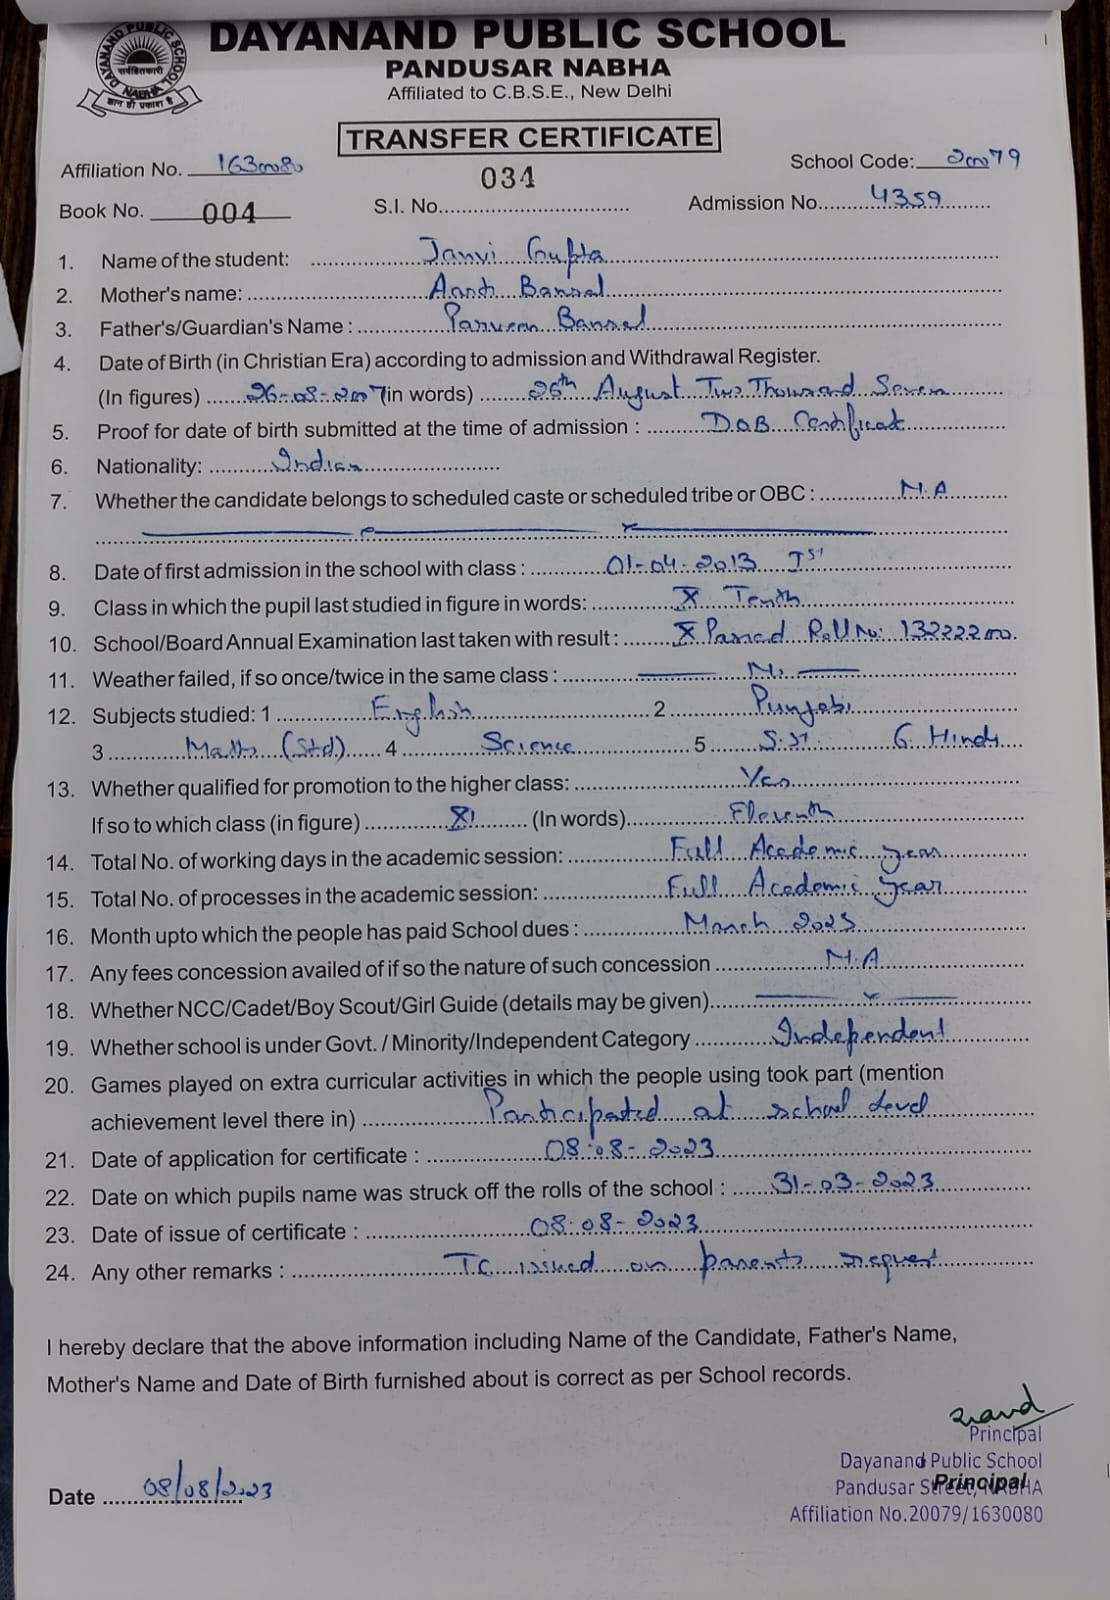 DAYANAND PUBLIC SCHOOL
DAYANAND PUBLIC SCHOOL
NABHA
ज्ञान ही प्रकाश है
PANDUSAR NABHA
Affiliated to C.B.S.E., New Delhi
TRANSFER CERTIFICATE
Affiliation No. 1630080 034 School Code: 20079
Book No. 004 S.I. No. Admission No. 4359
1. Name of the student: Janvi Gupta
2. Mother's name: Bansal
3. Father's/Guardian's Name : Parveen Bansal
4. Date of Birth (in Christian Era) according to admission and Withdrawal Register.
(In figures) 26-08-2007 (in words) 26th August Two Thousand Seven
5. Proof for date of birth submitted at the time of admission : D.O.B. Certificate
6. Nationality: Indian
7. Whether the candidate belongs to scheduled caste or scheduled tribe or OBC : N.A
8. Date of first admission in the school with class : 01-04-2013 Ist
9. Class in which the pupil last studied in figure in words: X Tenth
10. School/Board Annual Examination last taken with result : X Passed Roll No: 13222200
11. Weather failed, if so once/twice in the same class : No
12. Subjects studied: 1 English 2 Punjabi
3 Maths (Std) 4 Science 5 S.St. 6. Hindi
13. Whether qualified for promotion to the higher class: Yes
If so to which class (in figure) XI (In words) Eleventh
14. Total No. of working days in the academic session: Full Academic year
15. Total No. of processes in the academic session: Full Academic year
16. Month upto which the people has paid School dues : March 2023
17. Any fees concession availed of if so the nature of such concession N.A
18. Whether NCC/Cadet/Boy Scout/Girl Guide (details may be given)
19. Whether school is under Govt. / Minority/Independent Category Independent
20. Games played on extra curricular activities in which the people using took part (mention
achievement level there in) Participated at school level
21. Date of application for certificate : 08-08-2023
22. Date on which pupils name was struck off the rolls of the school : 31-03-2023
23. Date of issue of certificate : 08-08-2023
24. Any other remarks : TC issued on parents request
I hereby declare that the above information including Name of the Candidate, Father's Name,
Mother's Name and Date of Birth furnished about is correct as per School records.
Principal
Dayanand Public School
Date 08/08/2023 Pandusar Street, NABHA
Principal
Affiliation No.20079/1630080